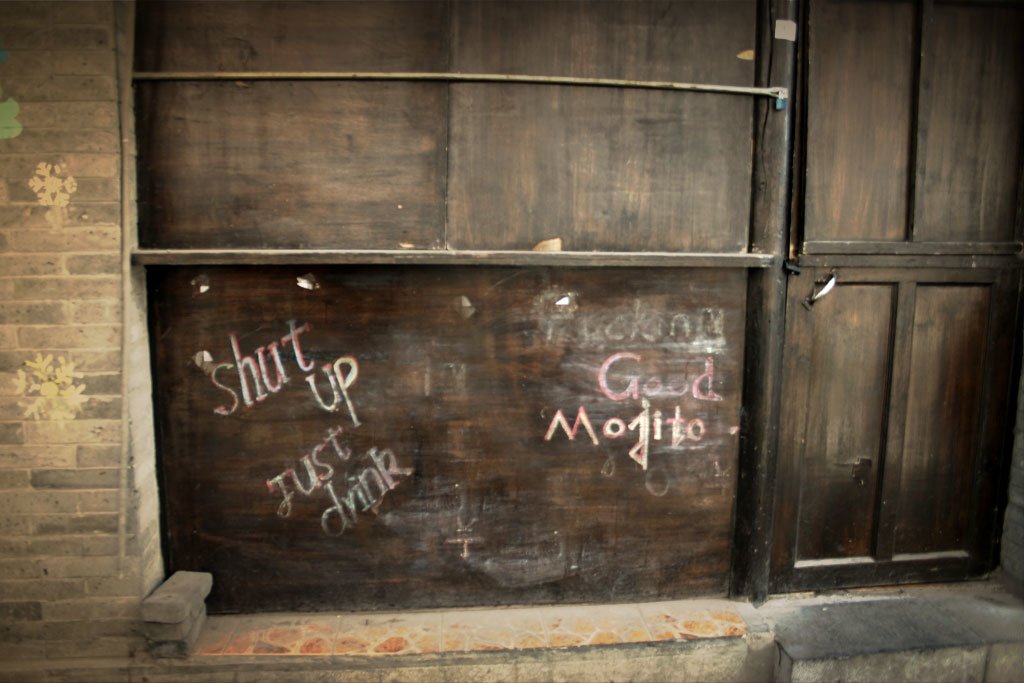 Shut
up
Just
drink
Fucking
Good
Mojito